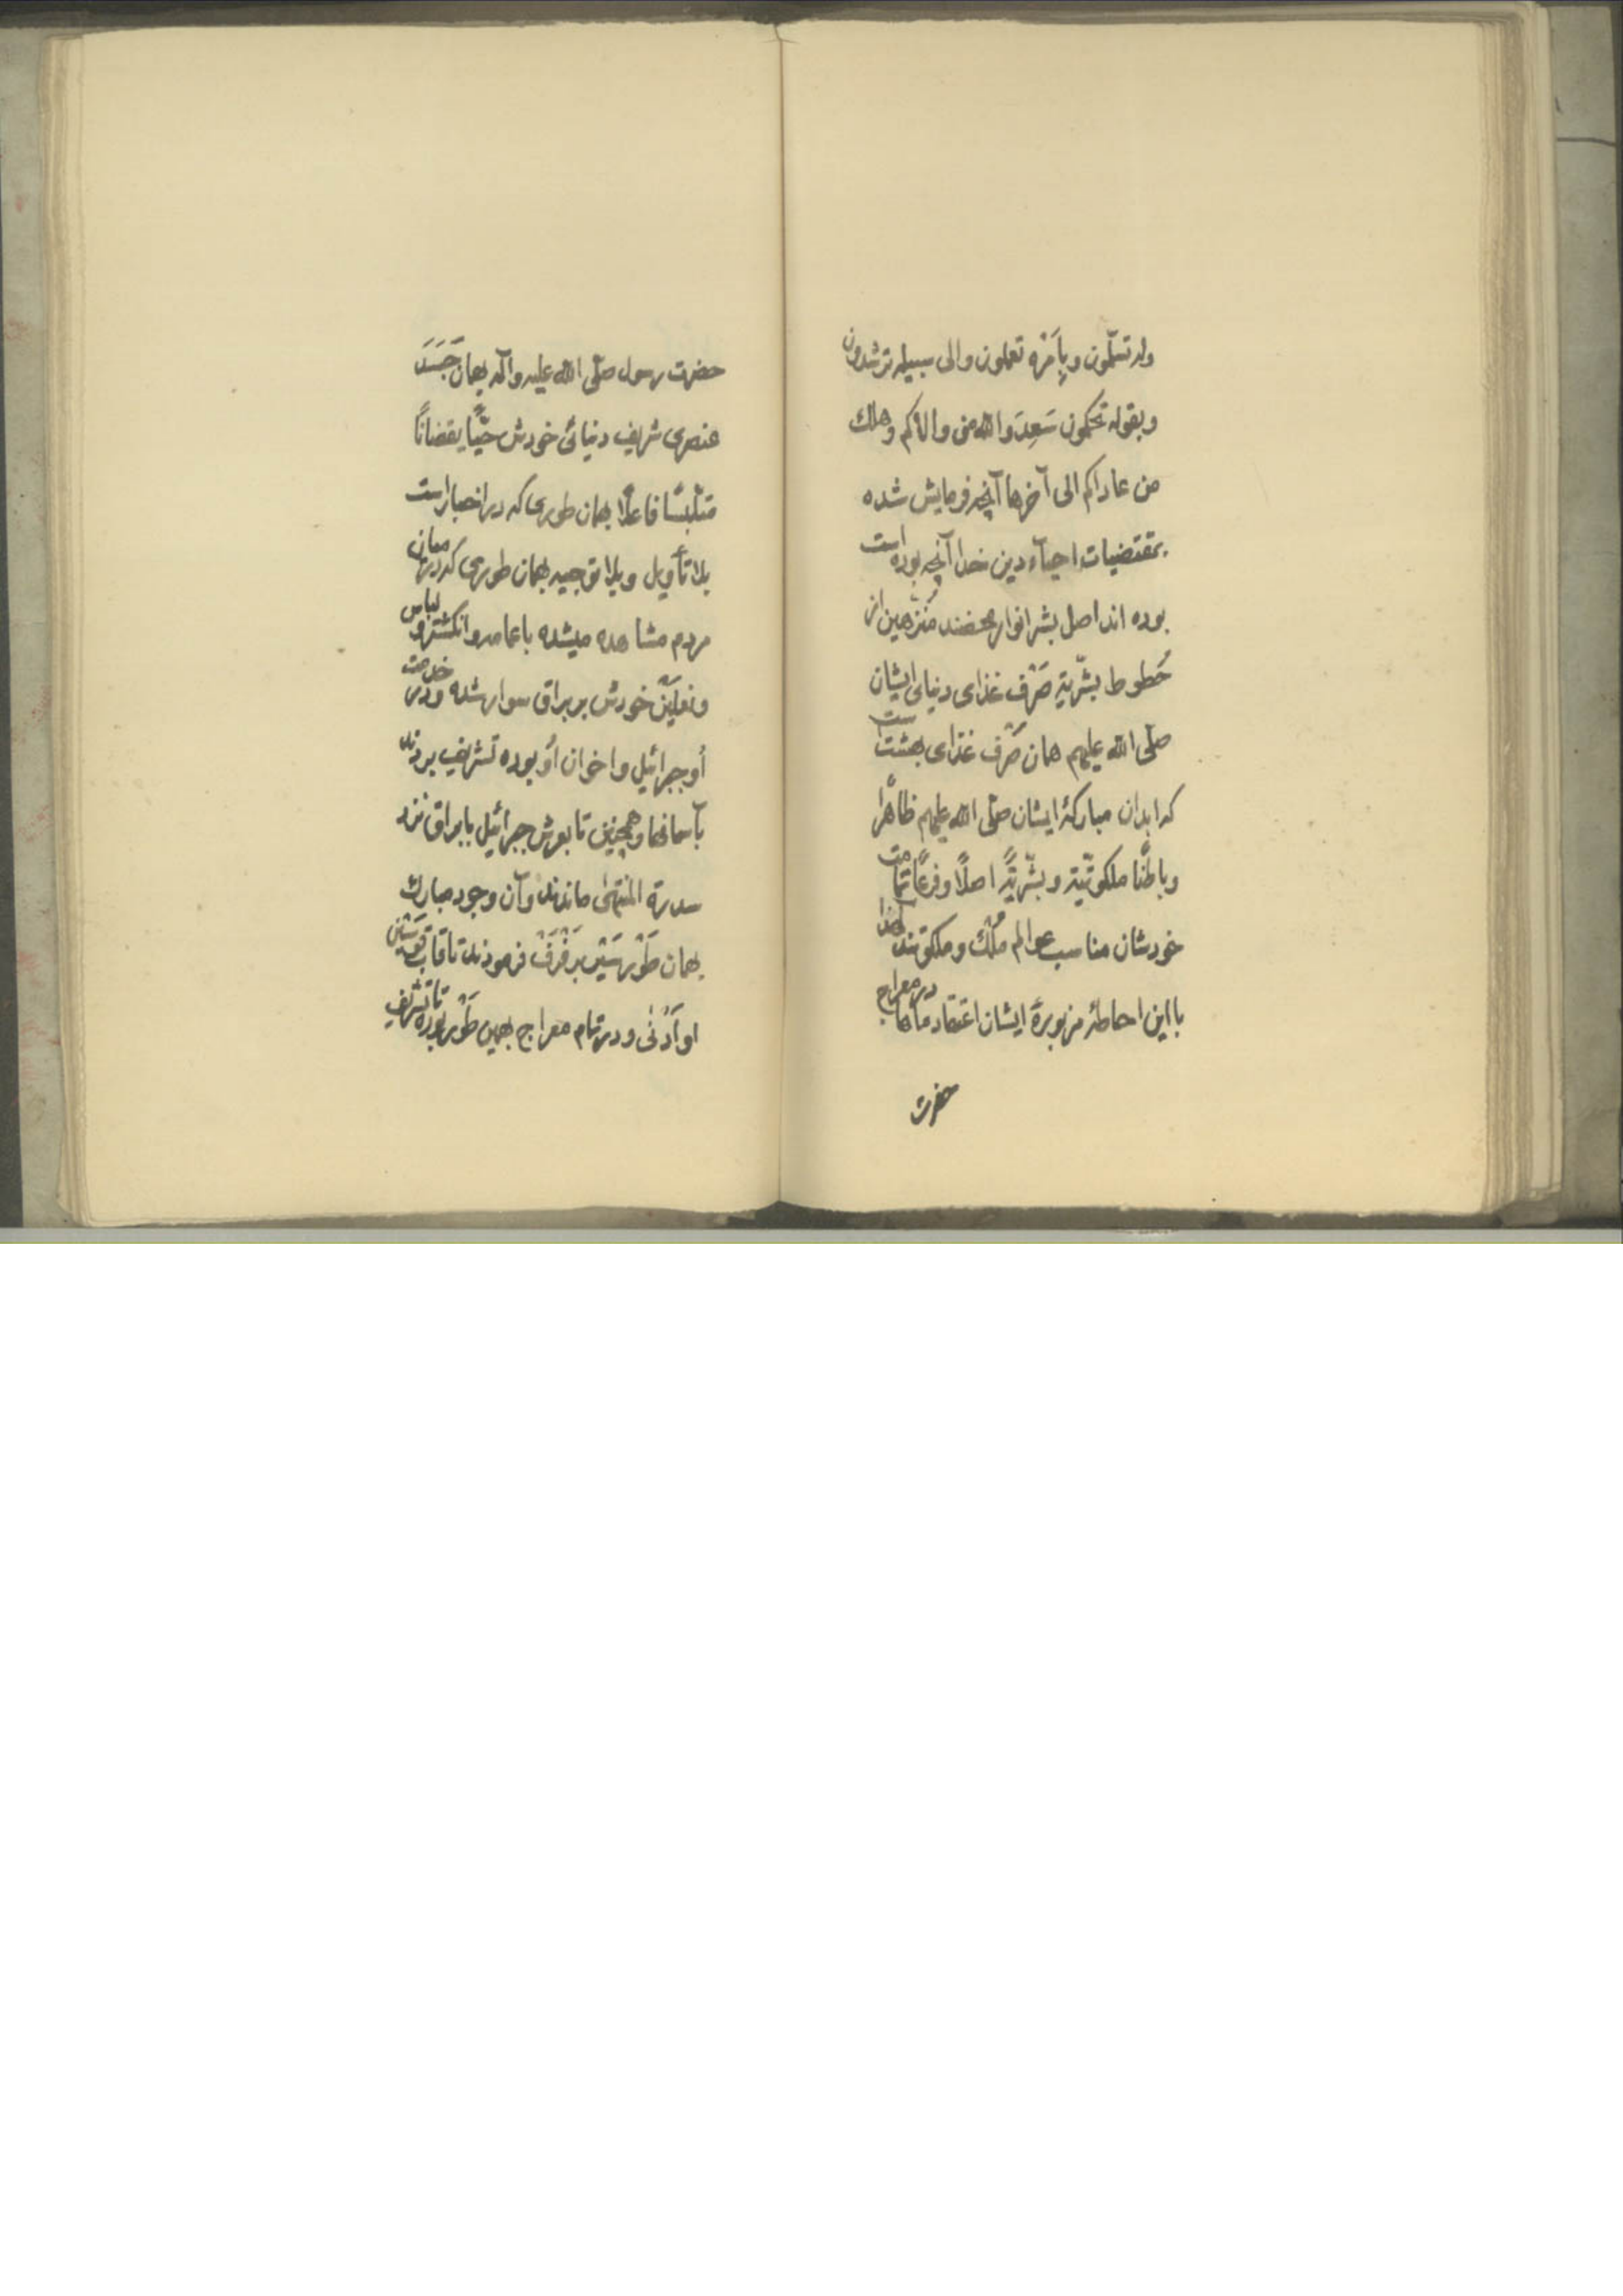 وله تسلّمون وبِاَمْرِه تعملون والی سبیله ترشدون
وبقوله تحکمون سَعِدَ والله من والاکم وهلك
من عاداکم الی آخرها آنچه فرمایش شده
بمقتضیات احیآء دین خدا آنچه بوده است
بوده اند اصل بشر انوار محضند مُنَزهین از
حُطوط بشّریّة صَرْف غذای دنیای ایشان
صلّی الله علیهم همان صَرْف غذای بهشت است
که ابدان مبارکۀ ایشان صلّی الله علیهم ظاهرًا
وباطنًا ملکوتیّة وبشریّةً اصلًا وفرعًا تمامت
خودشان مناسب عوالم مُلْك وملکوتند لهذا
با این احاطۀ مزبورۀ ایشان اعتقاد ماها در معراج
حضرت
حضرت رسول صلّی الله علیه وآله بهمان جَسَدَ
عنصری شریف دنیائی خودش حیًّا یقضانًا
متلبّسًا فاعلًا بهمان طوری که در اخبار است
بلا تأویل وبلا توجیه بهمان طوری که در میان
مردم مشاهده میشده با عمامه وانکشتر و لباس
ونعلَیْن خودش بر براق سوار شده ودر خدمت
اُو جبرائیل واخوان اُو بوده تشریف بردند
بآسمانها وهمچنین تا بعرش جبرائیل با براق نزد
سدرة المنتهیٰ ماندند وآن وجود مبارك
بهمان طَوْر سَیْر بَرَفْرَفْ فرمودند تا قاب قوسَیْن
او اَدْنیٰ ودر تمام معراج بهمین طَوْر بوده تا تشریف